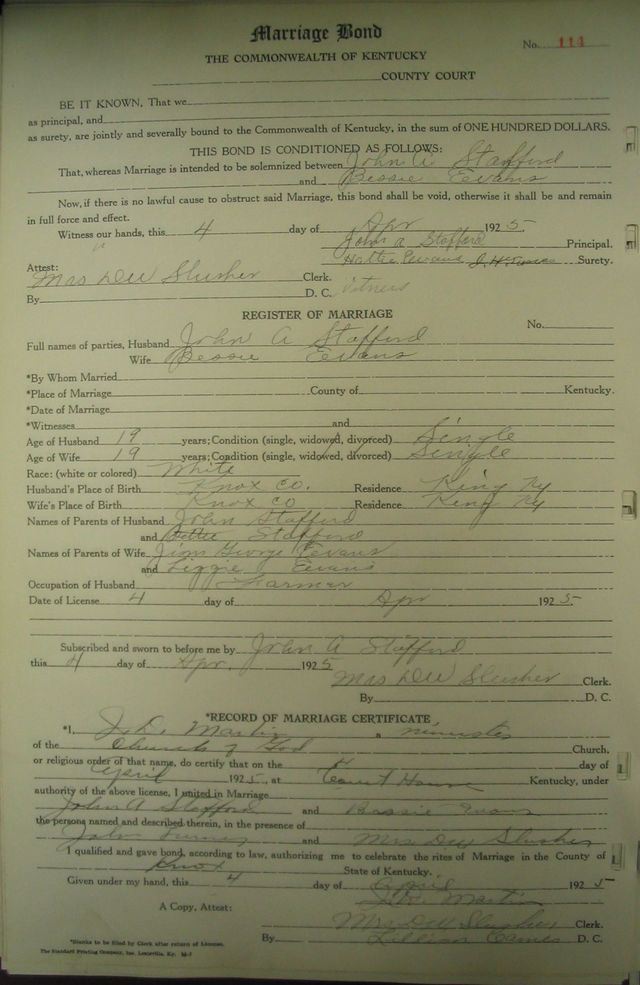 Marriage Bond
No. 114
THE COMMONWEALTH OF KENTUCKY
COUNTY COURT
BE IT KNOWN, That we
as principal, and
as surety, are jointly and severally bound to the Commonwealth of Kentucky, in the sum of ONE HUNDRED DOLLARS.
THIS BOND IS CONDITIONED AS FOLLOWS:
That, whereas Marriage is intended to be solemnized between John A Stafford
and Bessie Evans
Now, if there is no lawful cause to obstruct said Marriage, this bond shall be void, otherwise it shall be and remain
in full force and effect.
Witness our hands, this 4 day of Apr 1925
John A Stafford Principal.
Hattie Evans Surety.
Attest:
Mrs DW Slusher Clerk.
By D. C. Witness
REGISTER OF MARRIAGE
No.
Full names of parties, Husband John A Stafford
Wife Bessie Evans
*By Whom Married
*Place of Marriage County of Kentucky.
*Date of Marriage
*Witnesses and
Age of Husband 19 years; Condition (single, widowed, divorced) Single
Age of Wife 19 years; Condition (single, widowed, divorced) Single
Race: (white or colored) White
Husband's Place of Birth Knox Co. Residence King Ky
Wife's Place of Birth Knox Co Residence King Ky
Names of Parents of Husband John Stafford
and Stafford
Names of Parents of Wife Jim George Evans
and Lizzie Evans
Occupation of Husband Farmer
Date of License 4 day of Apr 1925
Subscribed and sworn to before me by John A Stafford
this 4 day of Apr. 1925
Mrs DW Slusher Clerk.
By D. C.
*RECORD OF MARRIAGE CERTIFICATE
*I, J.D. Martin a minister
of the Church of God Church,
or religious order of that name, do certify that on the 4 day of
April 1925, at Court House Kentucky, under
authority of the above license, I united in Marriage
John A Stafford and Bessie Evans
the persons named and described therein, in the presence of
John and Mrs DW Slusher
I qualified and gave bond, according to law, authorizing me to celebrate the rites of Marriage in the County of
Knox State of Kentucky.
Given under my hand, this 4 day of April 1925
J.D. Martin
A Copy, Attest:
Mrs DW Slusher Clerk.
By Lillian Eames D. C.
*Blanks to be filed by Clerk after return of License.
The Standard Printing Company, Inc. Louisville, Ky.